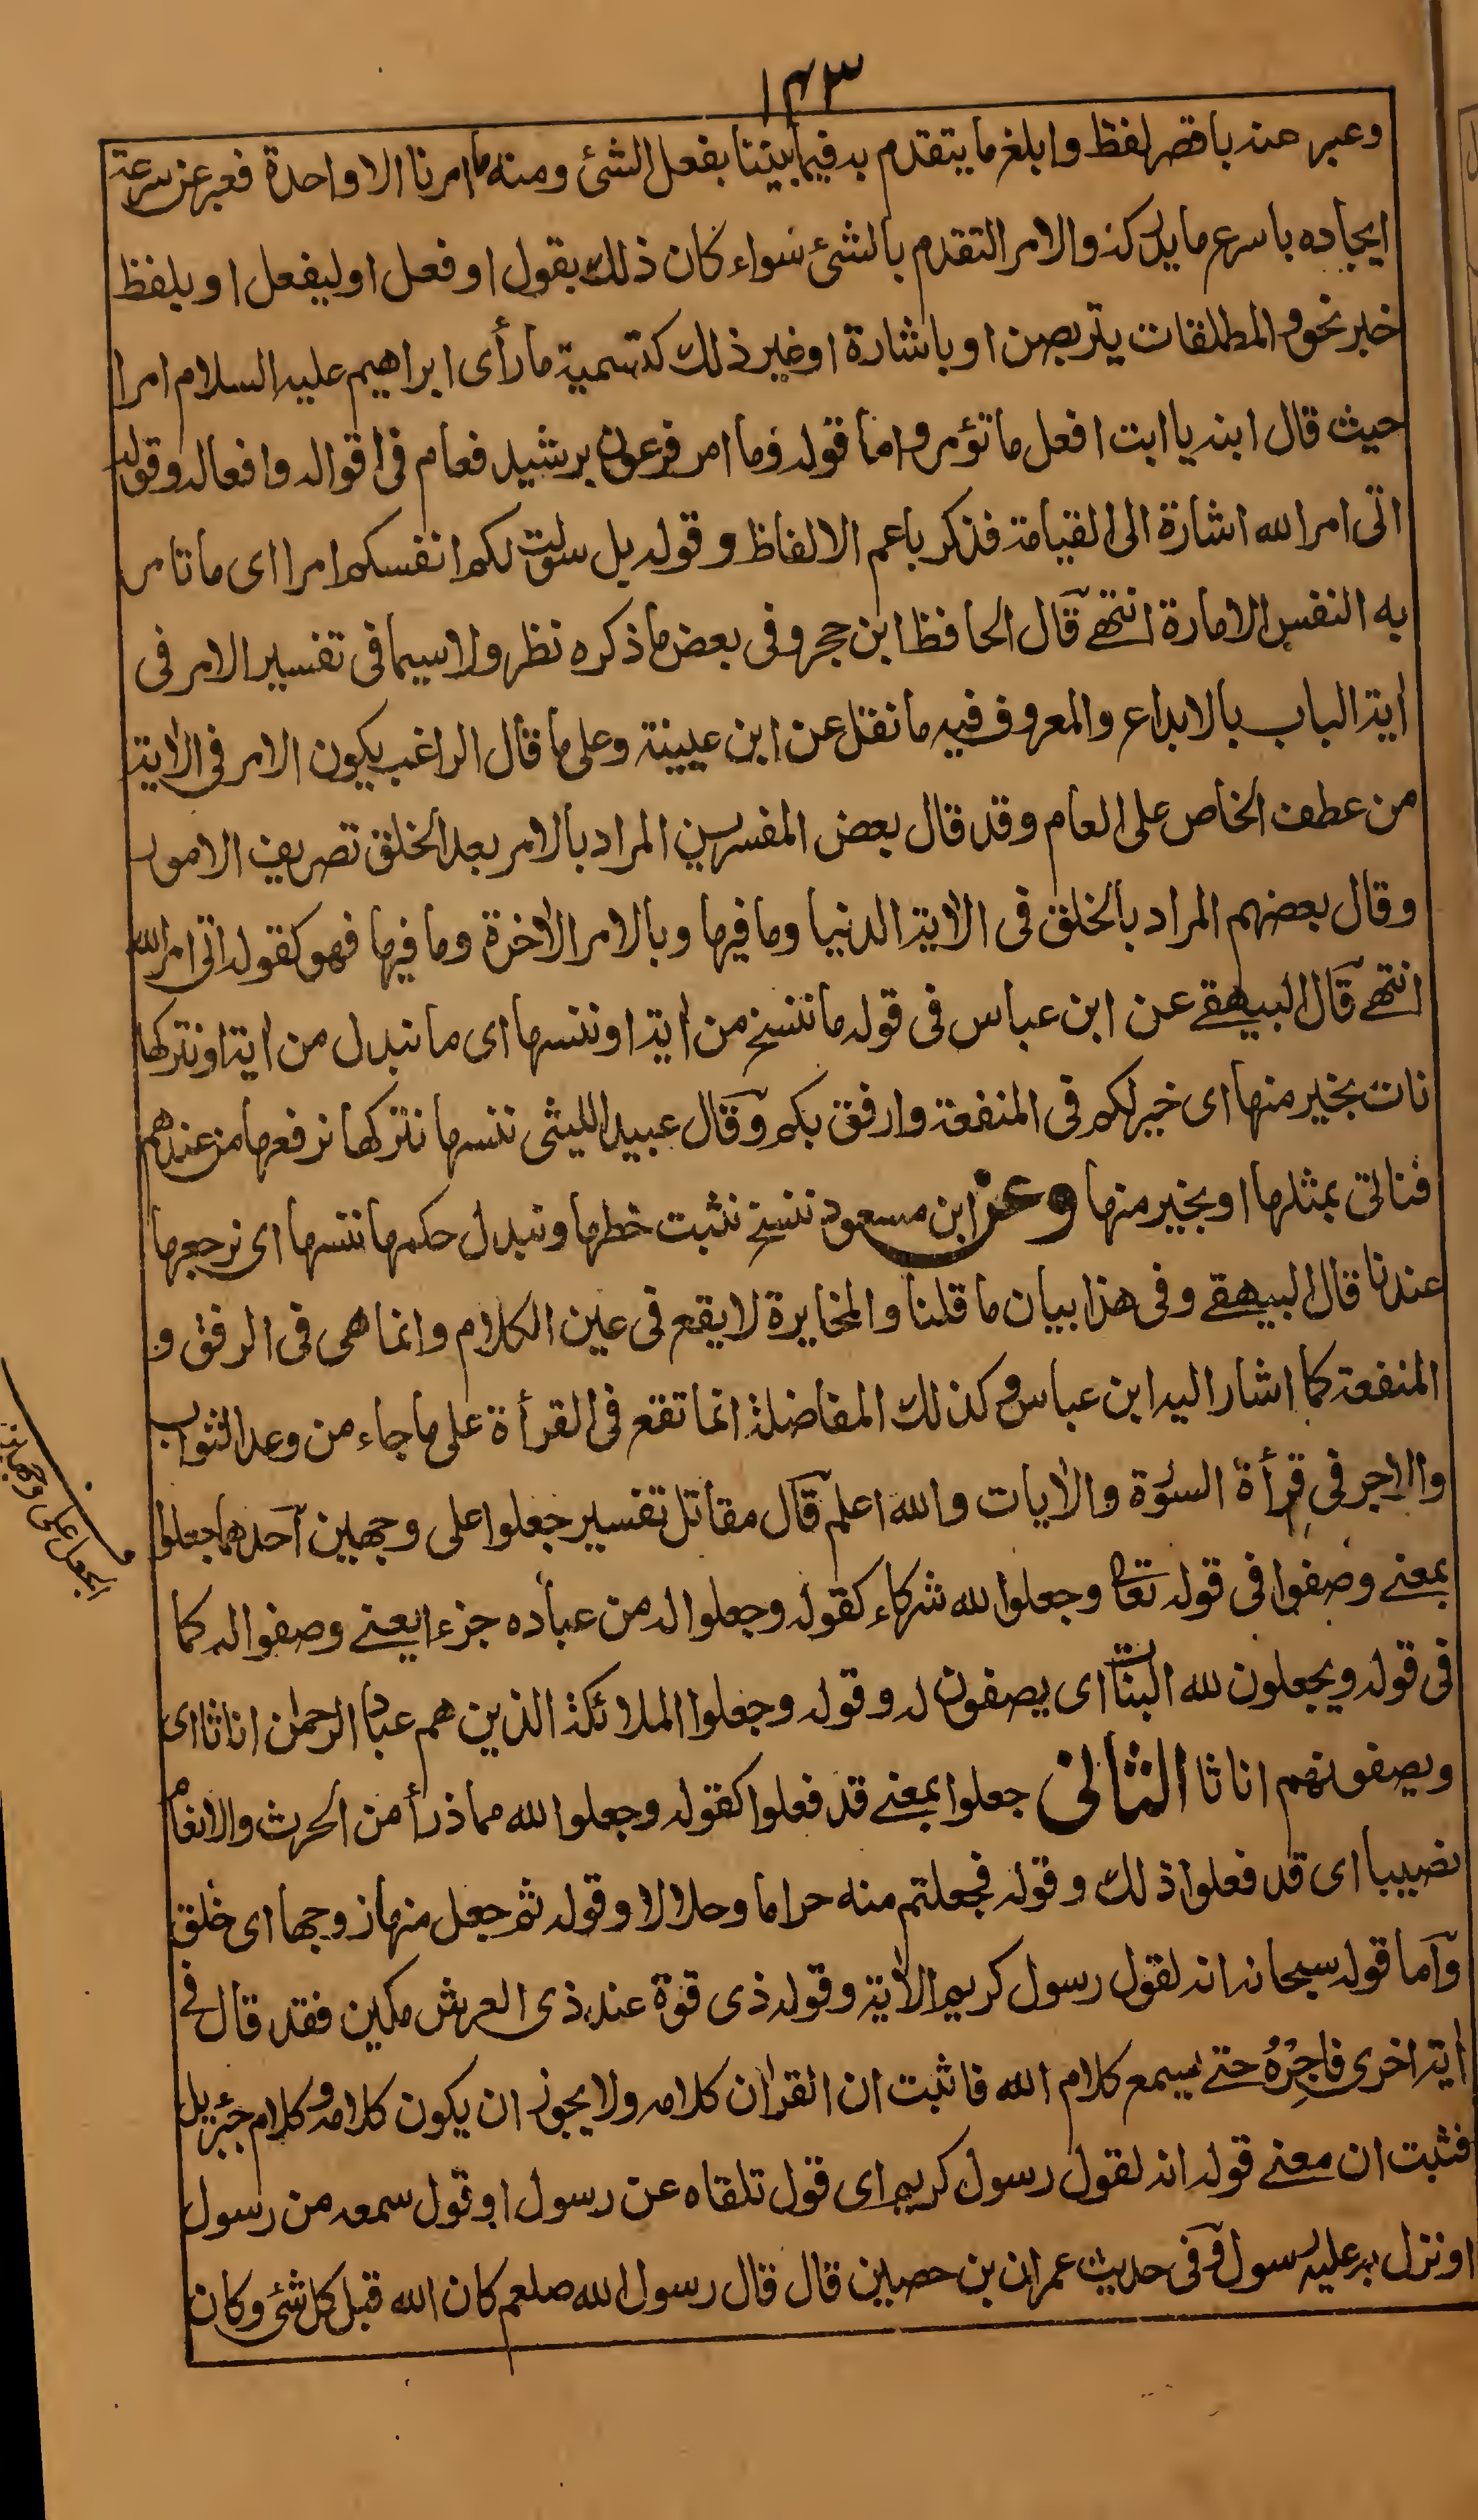 ١٤٣
وعبر عنه باقصر لفظ وابلغ ما يتقدم به فيما بيننا بفعل الشئ ومنه ما امرنا الا واحدة فعبر عن سرعة
ايجاده باسرع ما يدركه والامر التقدم بالشئ سواء كان ذلك بقول او فعل او ليفعل او بلفظ
خبر نحو والمطلقات يتربصن او باشارة او غير ذلك كتسمية ما رأى ابراهيم عليه السلام امرا
حيث قال ابنه يا ابت افعل ما تؤمر واما قوله وما امر فرعون برشيد فعام فى اقواله وافعاله وقوله
اتى امر الله اشارة الى القيامة فذكر باعم الالفاظ وقوله بل سولت لكم انفسكم امرا اى ما تامر
به النفس الامارة انتهى قال الحافظ ابن حجر وفى بعض ما ذكره نظر ولا سيما فى تفسير الامر فى
اية الباب بالابداع والمعروف فيه ما نقل عن ابن عيينة وعلى ما قال الراغب يكون الامر فى الاية
من عطف الخاص على العام وقد قال بعض المفسرين المراد بالامر بعد الخلق تصريف الامور
وقال بعضهم المراد بالخلق فى الاية الدنيا وما فيها وبالامر الاخرة وما فيها فهو كقوله اتى امر الله
انتهى قال البيهقے عن ابن عباس فى قوله ما ننسخ من اية او ننسها اى ما نبدل من اية او نتركها
نات بخير منها اى خير لكم فى المنفعة وارفق بكم وقال عبيد الليثى ننسها نتركها نرفعها من عندهم
فناتى بمثلها او بخير منها وعن ابن مسعود ننسخ نثبت خطها ونبدل حكمها ننسها اى نرجعها
عندنا قال البيهقے وفى هذا بيان ما قلنا والمخايرة لا يقع فى عين الكلام وانما هى فى الرفق و
المنفعة كما اشار اليه ابن عباس وكذلك المفاضلة انما تقع فى القرأة على ما جاء من وعد الثواب
والاجر فى قرأة السورة والايات والله اعلم قال مقاتل تفسير جعلوا على وجهين احدهما جعلوا
بمعنے وصفوا فى قوله تعالى وجعلوا لله شركاء كقوله وجعلوا له من عباده جزء ايعنے وصفوا له كما
فى قوله ويجعلون لله البنات اى يصفون له وقوله وجعلوا الملائكة الذين هم عباد الرحمن اناثا اى
ويصفونهم اناثا الثانى جعلوا بمعنے قد فعلوا كقوله وجعلوا لله مما ذرأ من الحرث والانعام
نصيبا اى قد فعلوا ذلك وقوله فجعلتم منه حراما وحلالا وقوله ثم جعل منها زوجها اى خلق
واما قوله سبحانه انه لقول رسول كريم الاية وقوله ذى قوة عند ذى العرش مكين فقد قال فے
اية اخرى فاجِرْهُ حتے يسمع كلام الله فاثبت ان القران كلامه ولا يجوز ان يكون كلامه وكلام جبرئيل
فثبت ان معنے قوله انه لقول رسول كريم اى قول تلقاه عن رسول او قول سمعه من رسول
او نزل به عليه رسول وفى حديث عمران بن حصين قال قال رسول الله صلعم كان الله قبل كل شئ وكان
الجعل على وجهين